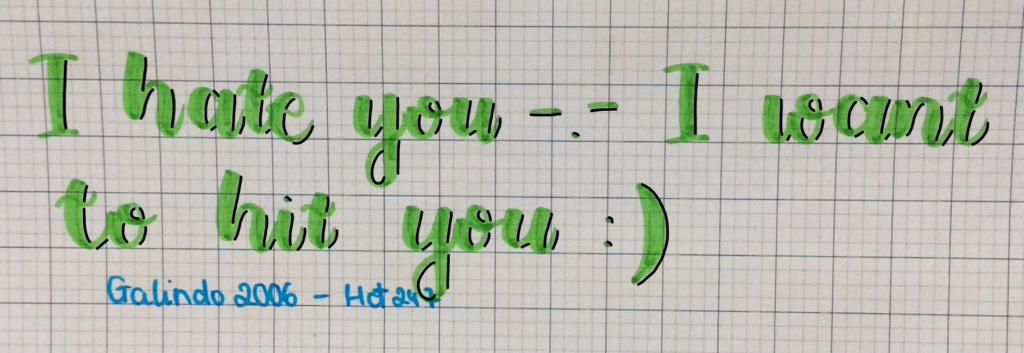 I hate you -.- I want
to hit you :)
Galindo 2006 - Hot 247